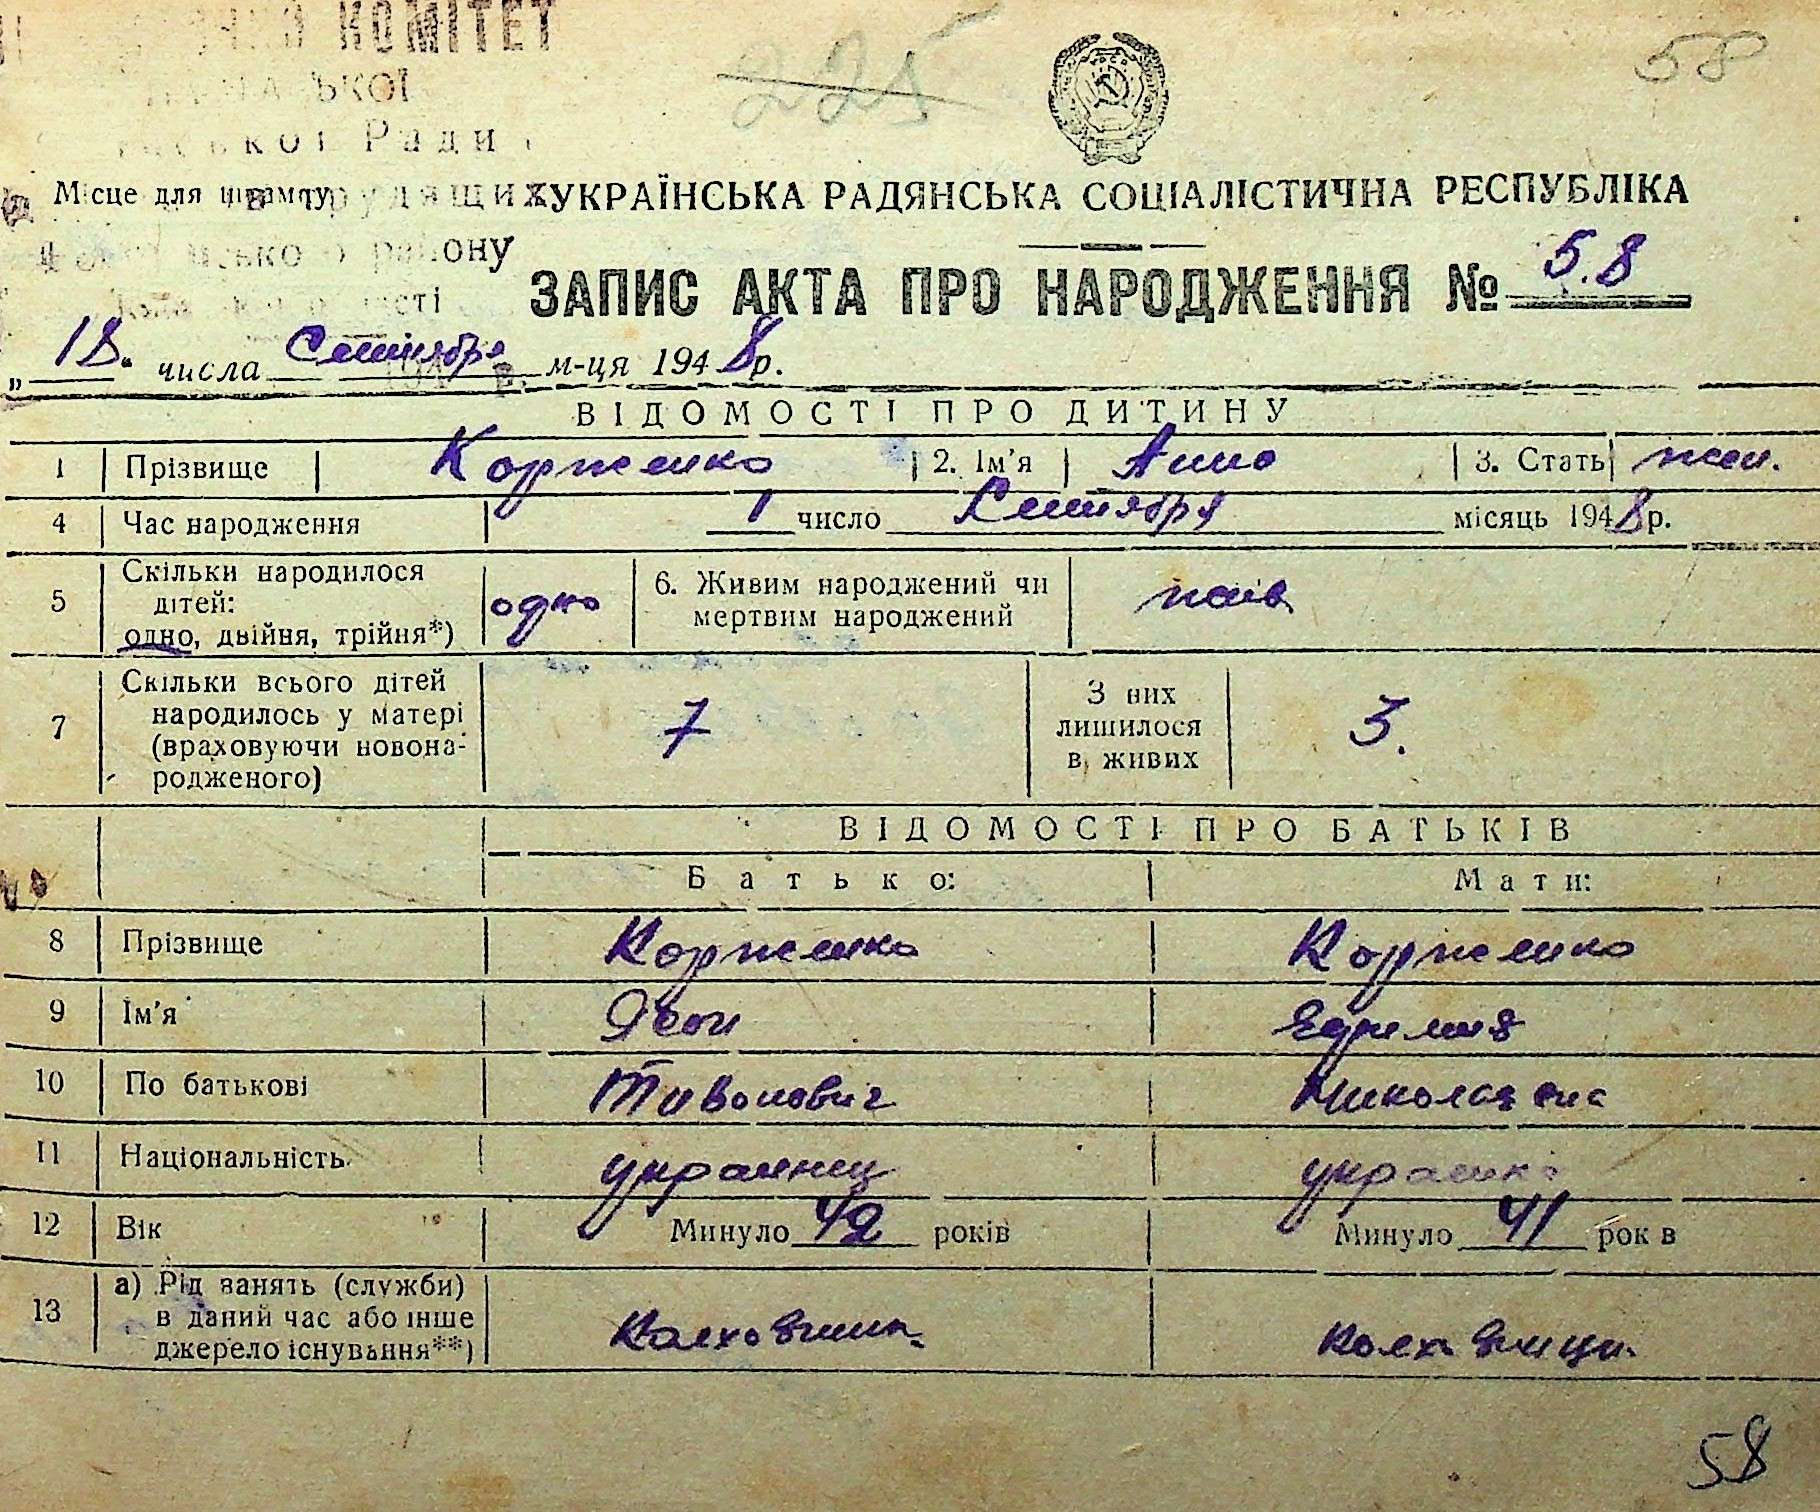 КОМІТЕТ
225
58
Ради
Місце для штампу трудящих УКРАЇНСЬКА РАДЯНСЬКА СОЦІАЛІСТИЧНА РЕСПУБЛІКА
району
ЗАПИС АКТА ПРО НАРОДЖЕННЯ № 58
„18" числа Сентября м-ця 1948р.
ВІДОМОСТІ ПРО ДИТИНУ
1 Прізвище Корженко 2. Ім'я Анна 3. Стать жен.
4 Час народження 1 число Сентября місяць 1948р.
5 Скільки народилося дітей: одно, двійня, трійня*) одно 6. Живим народжений чи мертвим народжений
7 Скільки всього дітей народилось у матері (враховуючи новонародженого) 7 З них лишилося в живих 3.
ВІДОМОСТІ ПРО БАТЬКІВ
Батько: Мати:
8 Прізвище Корженко Корженко
9 Ім'я
10 По батькові Николаевна
11 Національність украинец украинка
12 Вік Минуло 42 років Минуло 41 рок в
13 а) Рід занять (служби) в даний час або інше джерело існування**)
58